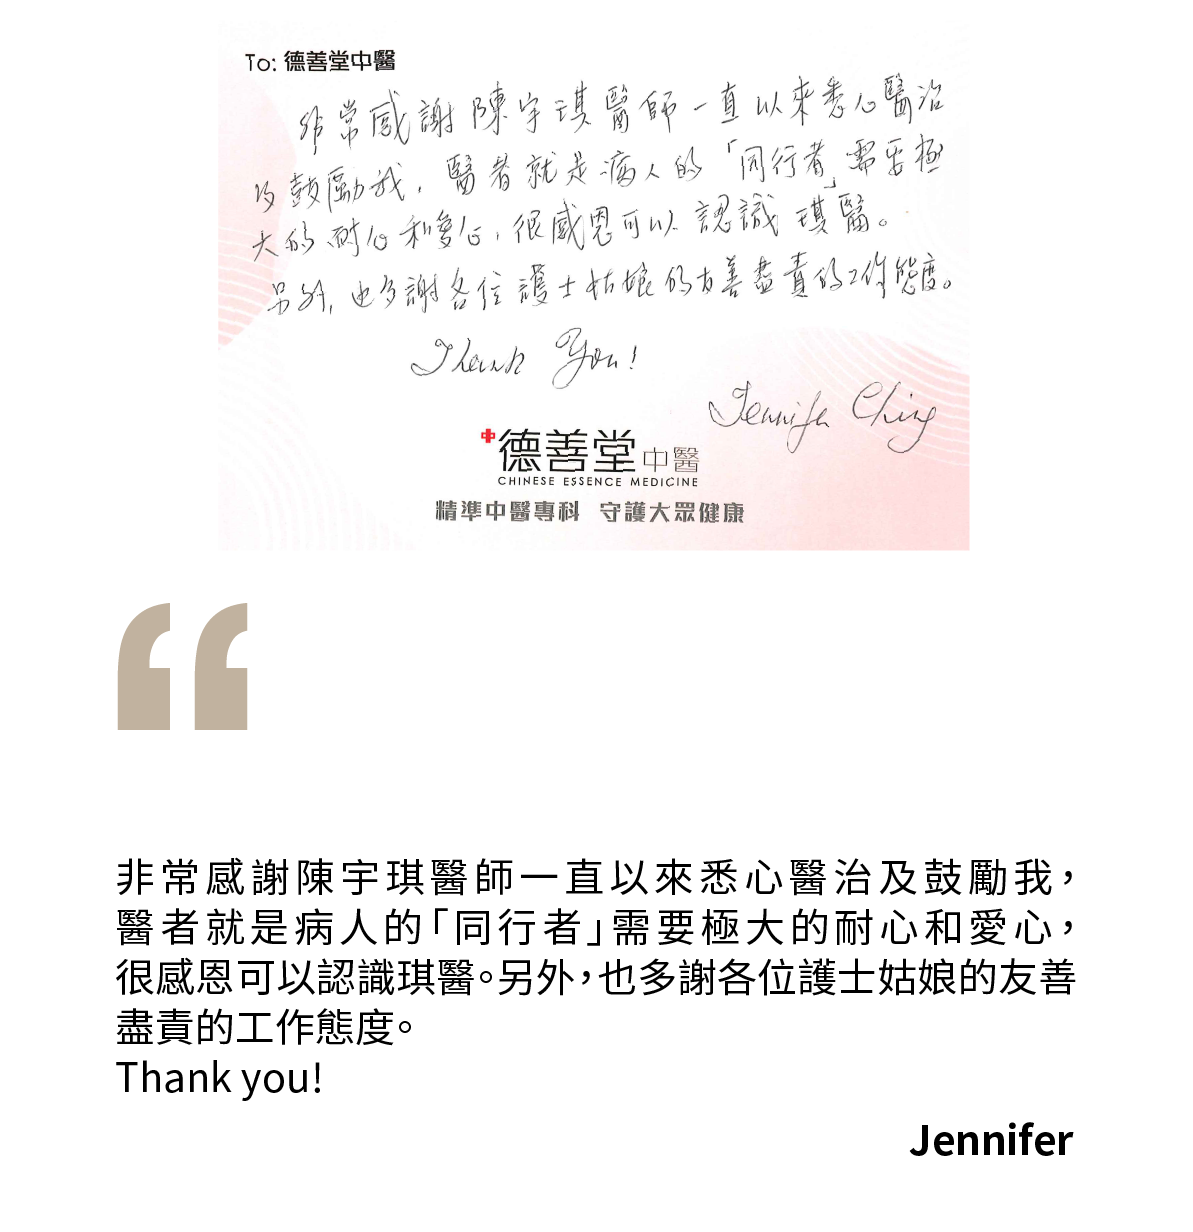 To: 德善堂中醫
非常感謝陳宇琪醫師一直以來悉心醫治
及鼓勵我，醫者就是病人的「同行者」需要極
大的耐心和愛心，很感恩可以認識琪醫。
另外，也多謝各位護士姑娘的友善盡責的工作態度。
Thank You!
Jennifer Ching
德善堂中醫
CHINESE ESSENCE MEDICINE
精準中醫專科 守護大眾健康
“
非常感謝陳宇琪醫師一直以來悉心醫治及鼓勵我，
醫者就是病人的「同行者」需要極大的耐心和愛心，
很感恩可以認識琪醫。另外，也多謝各位護士姑娘的友善
盡責的工作態度。
Thank you!
Jennifer